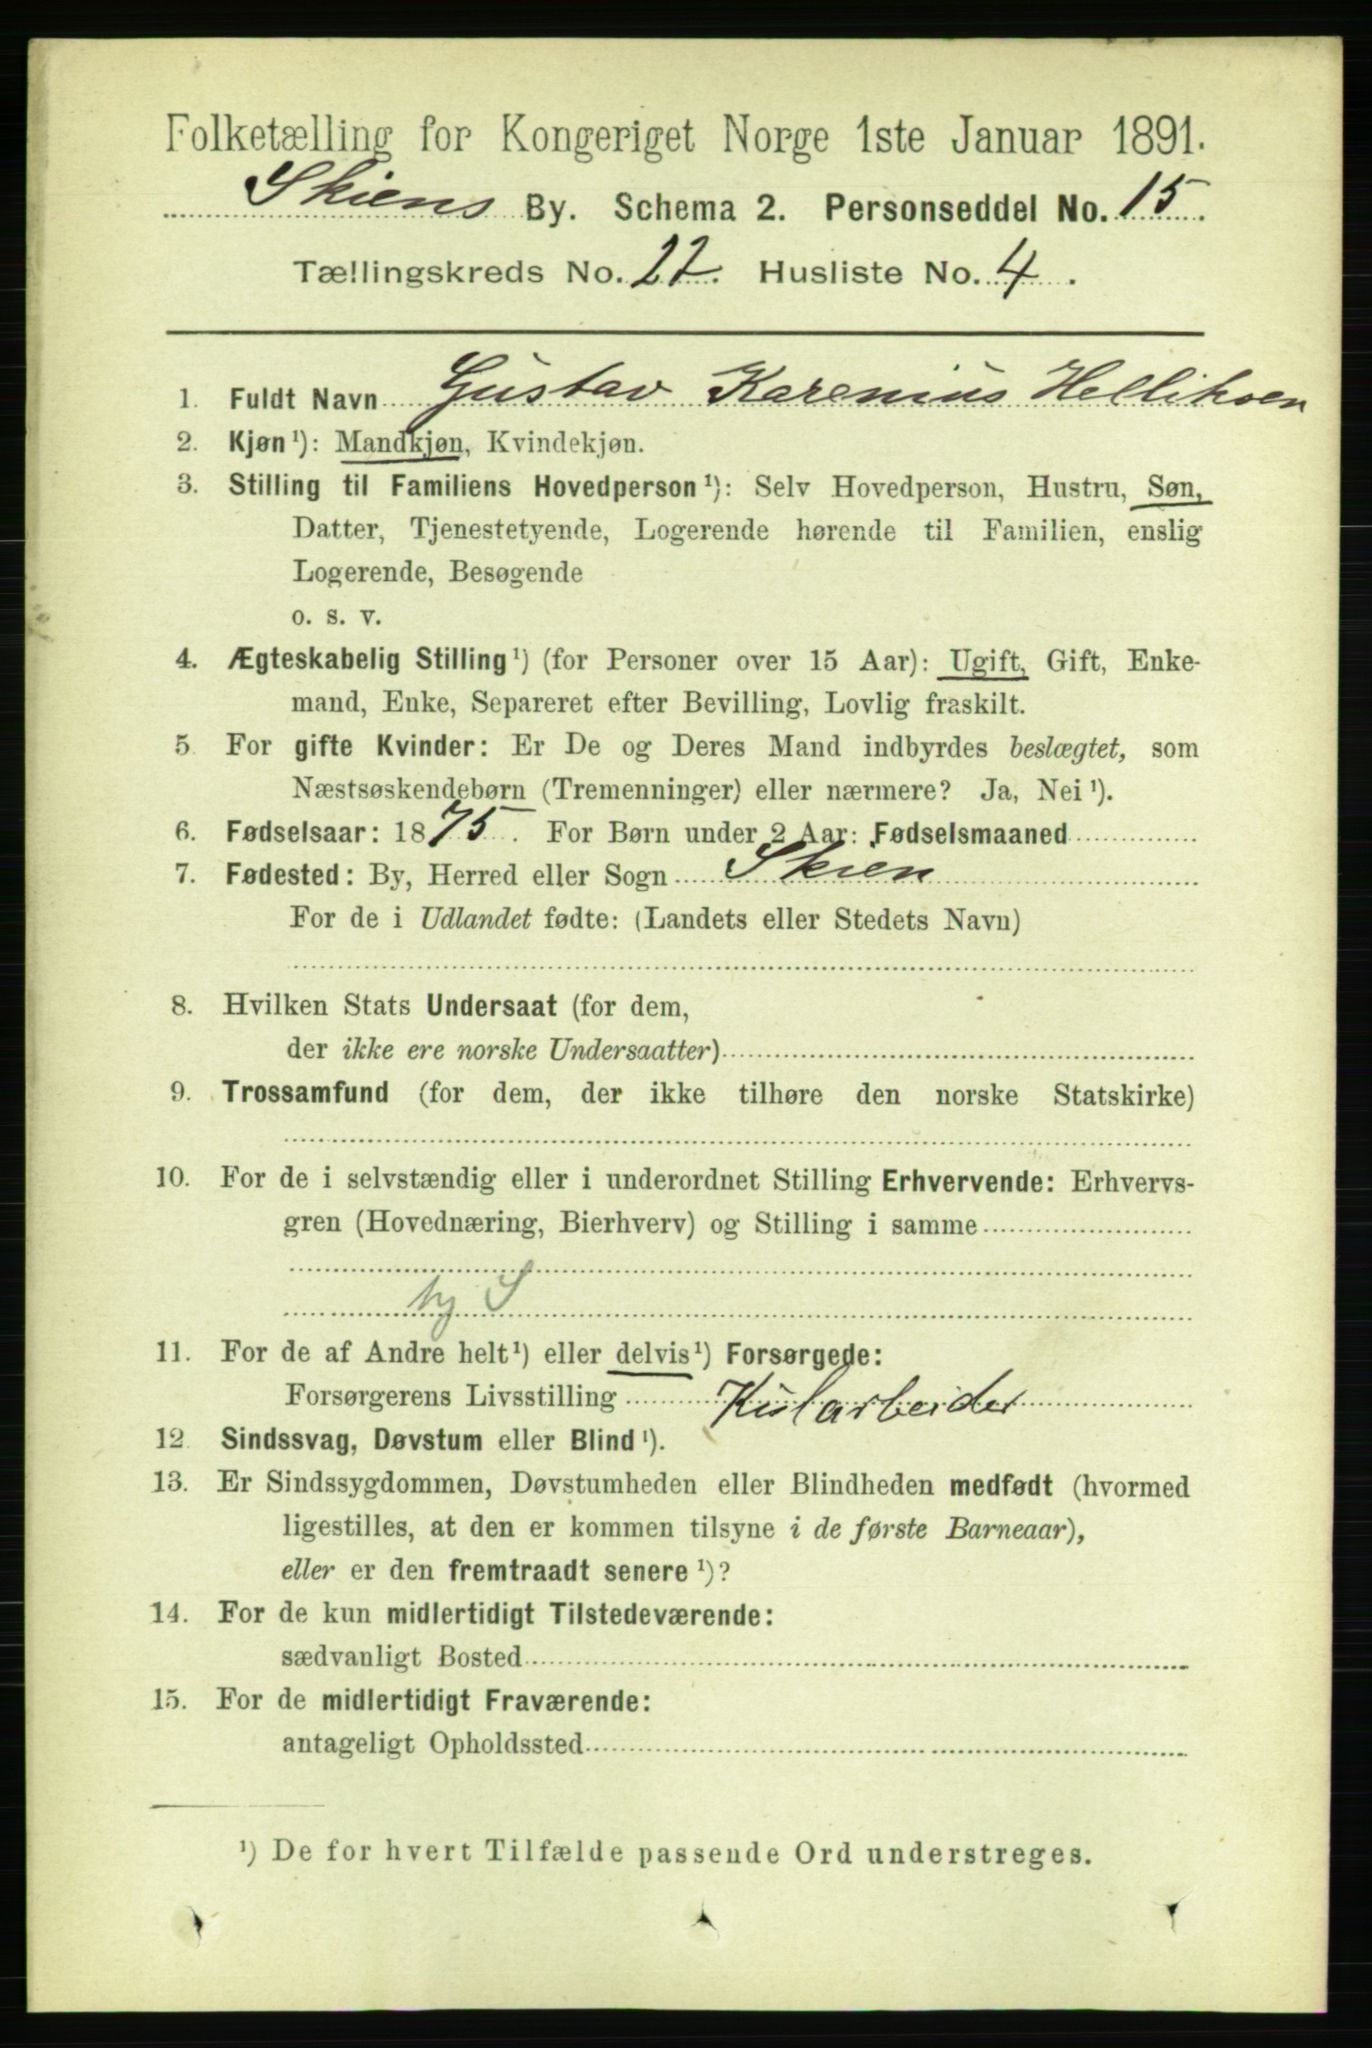 Folketælling for Kongeriget Norge 1ste Januar 1891.
Skiens By. Schema 2. Personseddel No. 15.
Tællingskreds No. 22. Husliste No. 4.
1. Fuldt Navn Gustav Karenius Helliksen
2. Kjøn ¹): Mandkjøn, Kvindekjøn.
3. Stilling til Familiens Hovedperson ¹): Selv Hovedperson, Hustru, Søn,
Datter, Tjenestetyende, Logerende hørende til Familien, enslig
Logerende, Besøgende
o. s. v.
4. Ægteskabelig Stilling ¹) (for Personer over 15 Aar): Ugift, Gift, Enke-
mand, Enke, Separeret efter Bevilling, Lovlig fraskilt.
5 For gifte Kvinder: Er De og Deres Mand indbyrdes beslægtet, som
Næstsøskendebørn (Tremenninger) eller nærmere? Ja, Nei ¹).
6. Fødselsaar: 1875. For Børn under 2 Aar: Fødselsmaaned
7. Fødested: By, Herred eller Sogn Skien
For de i Udlandet fødte: (Landets eller Stedets Navn)
8. Hvilken Stats Undersaat (for dem,
der ikke ere norske Undersaatter)
9. Trossamfund (for dem, der ikke tilhøre den norske Statskirke)
10. For de i selvstændig eller i underordnet Stilling Erhvervende: Erhvervs-
gren (Hovednæring, Bierhverv) og Stilling i samme
S
11. For de af Andre helt ¹) eller delvis ¹) Forsørgede:
Forsørgerens Livsstilling Kularbeider
12 Sindssvag, Døvstum eller Blind ¹).
13. Er Sindssygdommen, Døvstumheden eller Blindheden medfødt (hvormed
ligestilles, at den er kommen tilsyne i de første Barneaar),
eller er den fremtraadt senere ¹)?
14. For de kun midlertidigt Tilstedeværende:
sædvanligt Bosted
15. For de midlertidigt Fraværende:
antageligt Opholdssted
¹) De for hvert Tilfælde passende Ord understreges.